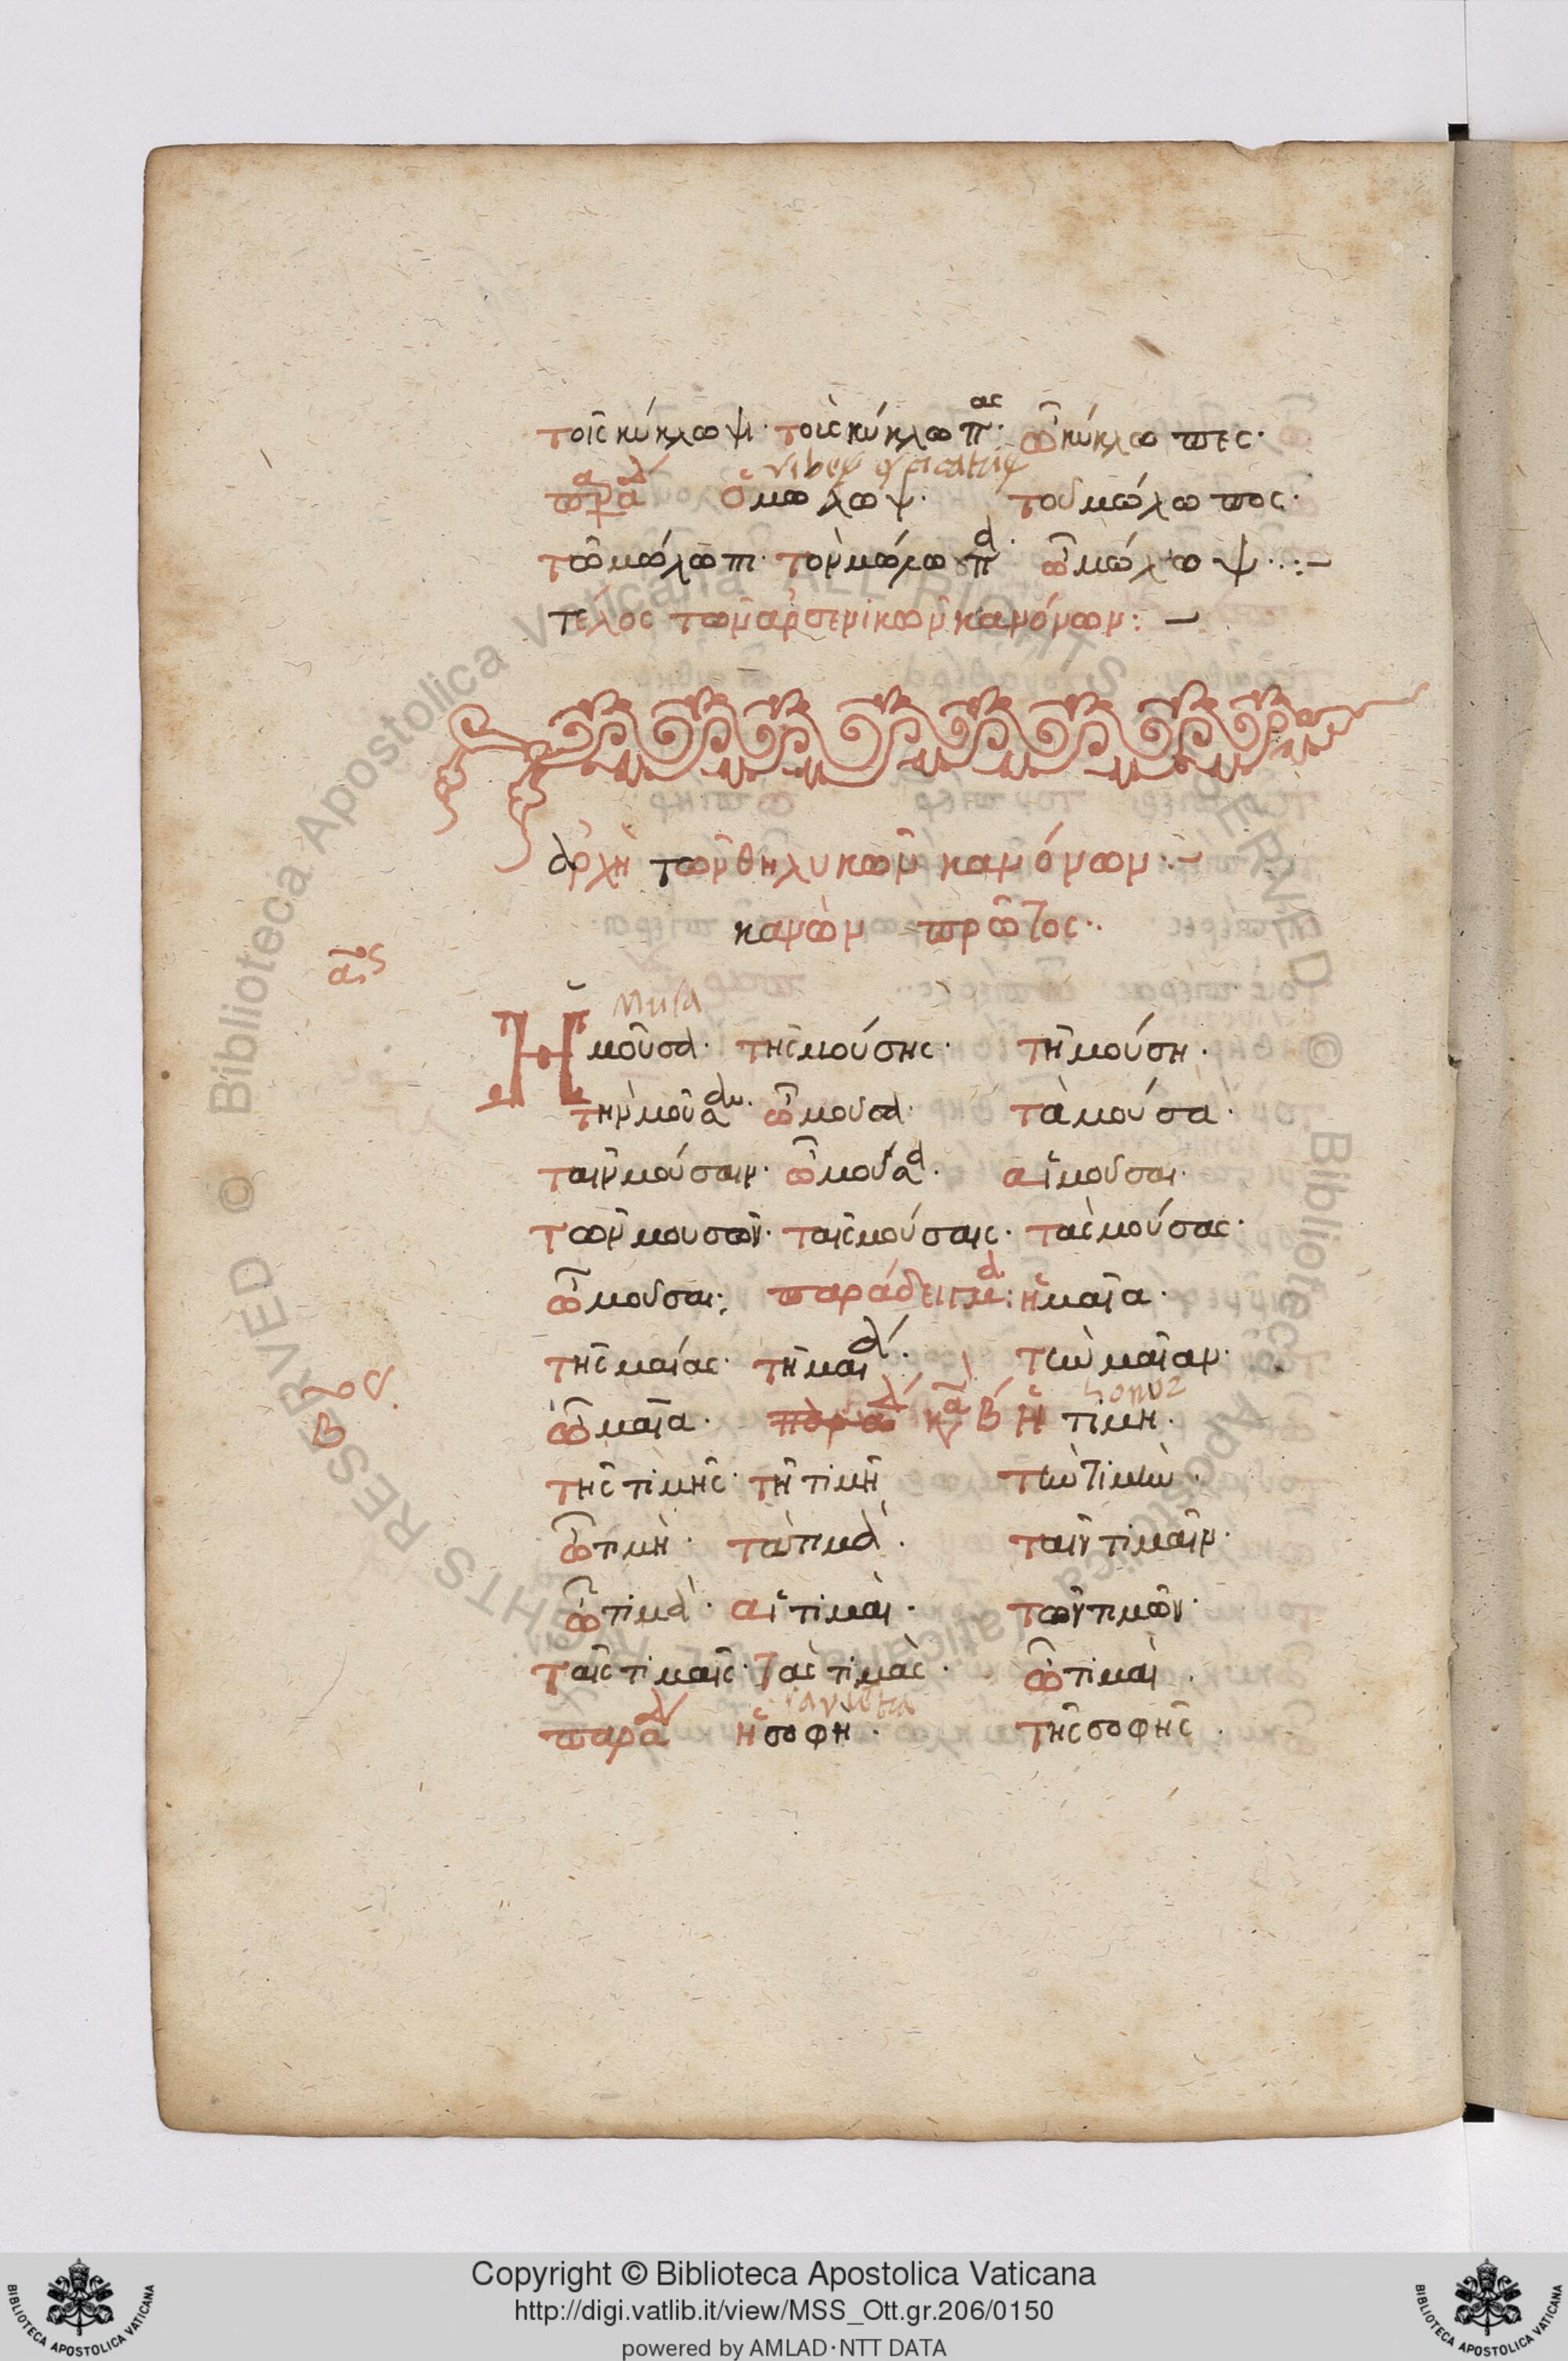 τοῖς κύκλωψι· τοὺς κύκλωπας· ὦ κύκλωπες·
παρα ὁ μώλωψ· τοῦ μώλωπος·
τῶ μώλωπι· τὸν μώλωπα· ὦ μώλωψ·:-
τέλος τῶν ἀρσενικῶν κανόνων:-
ἀρχὴ τῶν θηλυκῶν κανόνων:-
κανὼν πρῶτος··
α ος
musa
Ἡ μοῦσα· τῆς μούσης· τῆ μούση·
τὴν μοῦσαν· ὦ μοῦσα· τὰ μούσα·
ταῖν μούσαιν· ὦ μούσα· αἱ μοῦσαι·
τῶν μουσῶν· ταῖς μούσαις· τὰς μούσας·
ὦ μοῦσαι· παράδειγμα: ἡ μαῖα·
τῆς μαίας· τῆ μαία· τὴν μαῖαν·
β ος
ὦ μαῖα· κα β ἡ τιμή·
τῆς τιμῆς· τῆ τιμῆ τὴν τιμὴν·
ὦ τιμὴ· τὰ τιμὰ· ταῖν τιμαῖν·
ὦ τιμὰ· αἱ τιμαὶ· τῶν τιμῶν·
ταῖς τιμαῖς· τὰς τιμὰς· ὦ τιμαὶ·
παρα ἡ σοφή· τῆς σοφῆς·
Biblioteca Apostolica Vaticana ALL RIGHTS RESERVED ©
Copyright © Biblioteca Apostolica Vaticana
http://digi.vatlib.it/view/MSS_Ott.gr.206/0150
powered by AMLAD·NTT DATA
BIBLIOTECA APOSTOLICA VATICANA
BIBLIOTECA APOSTOLICA VATICANA